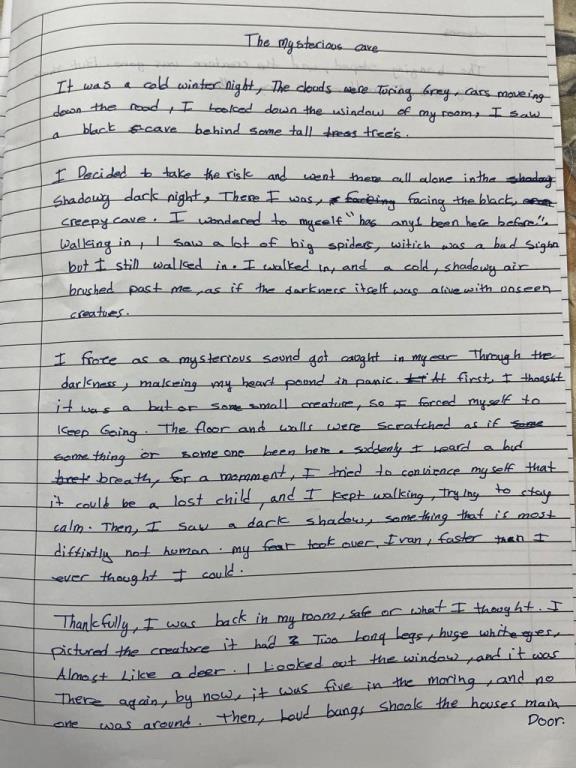 The mysterious cave
It was a cold winter night, The clouds were Turing Grey, cars moveing
down the road, I looked down the window of my room, I saw
a black cave behind some tall tress tree's.
I Decided to take the risk and went there all alone in the shadoy
Shadowy dark night, There I was, facing facing the black,
creepy cave. I wondered to myself "has any1 been here before".
Walking in, I saw a lot of big spiders, witich was a bad sighn
but I still walked in. I walked in, and a cold, shadowy air
brushed past me, as if the darkness itself was alive with onseen
creatues.
I froze as a mysterious sound got caught in my ear Through the
darkness, makeing my heart pound in panic. At first, I thought
it was a bat or some small creature, so I forced myself to
keep Going. The floor and walls were scratched as if some
something or some one been here. suddenly I heard a
breath, for a momment, I tried to convience myself that
it could be a lost child, and I kept walking, Trying to stay
calm. Then, I saw a dark shadow, something that is most
diffintly not human. my fear took over, I ran, faster than I
ever thought I could.
Thankfully, I was back in my room, safe or what I thought. I
pictured the creature it had Two Long Legs, huge white eyes,
Almost Like a deer. I Looked out the window, and it was
There again, by now, it was five in the moring, and no
one was around. Then, Loud bangs shook the houses main
Door.